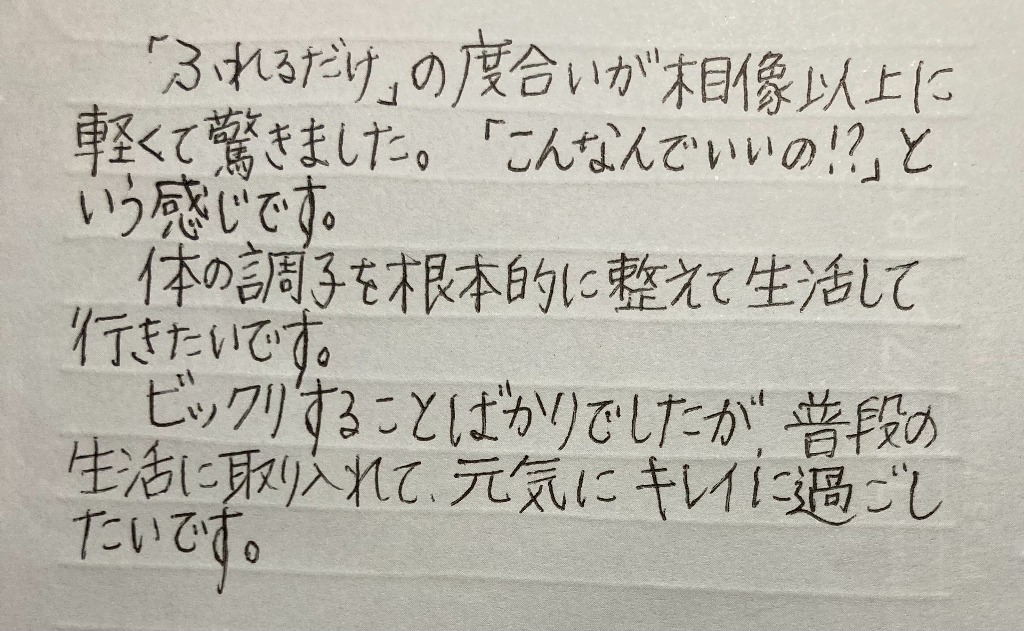 「ふれるだけ」の度合いが相像以上に
軽くて驚きました。「こんなんでいいの!?」と
いう感じです。
体の調子を根本的に整えて生活して
行きたいです。
ビックリすることばかりでしたが、普段の
生活に取り入れて、元気にキレイに過ごし
たいです。